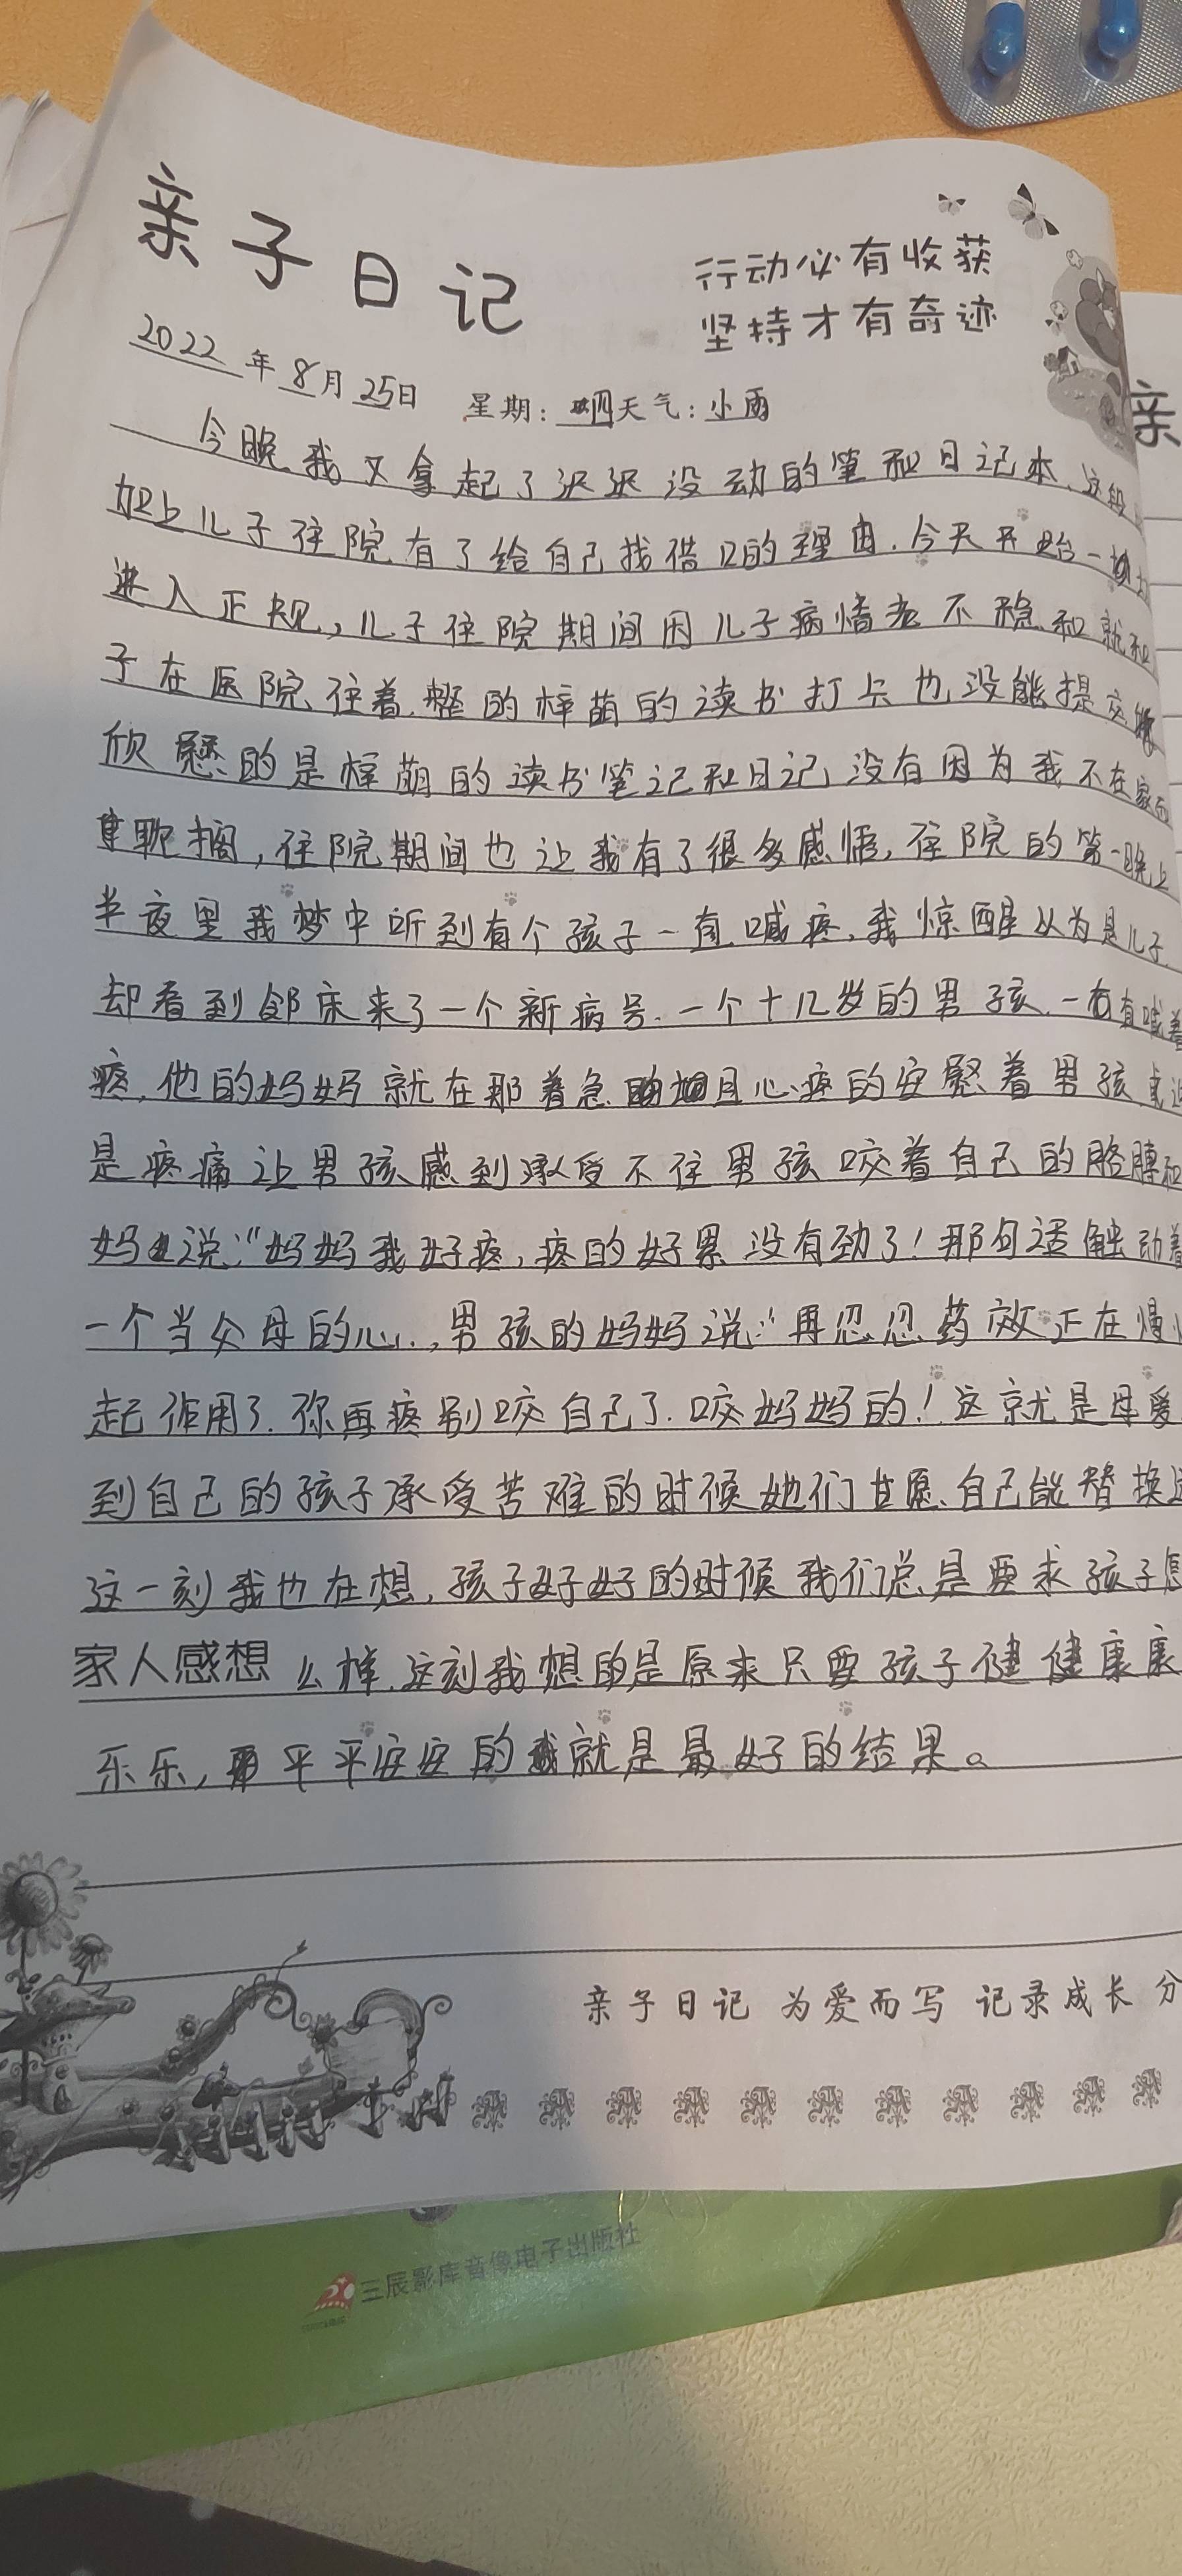 亲子日记
行动必有收获
坚持才有奇迹
2022年8月25日 星期:四天气:小雨
今晚我又拿起了迟迟没动的笔和日记本、这段
加上儿子住院有了给自己找借口的理由.今天开始一切
进入正规,儿子住院期间因儿子病情老不稳和就和
子在医院住着.整的梓萌的读书打卡也没能提交
欣慰的是梓萌的读书笔记和日记没有因为我不在家而
耽搁,住院期间也让我有了很多感悟,住院的第一晚上
半夜里我梦中听到有个孩子一直喊疼,我惊醒以为是儿子
却看到邻床来了一个新病号.一个十几岁的男孩.一直喊着
疼,他的妈妈就在那着急且心疼的安慰着男孩
是疼痛让男孩感到承受不住男孩咬着自己的胳膊和
妈说:"妈妈我好疼,疼的好累没有劲了!那句话触动着
一个当父母的心..,男孩的妈妈说:"再忍忍药效正在慢
起作用了.你再疼别咬自己了.咬妈妈的!这就是母爱
到自己的孩子承受苦难的时候她们甘愿自己能替换
这一刻我也在想,孩子好好的时候我们总是要求孩子怎
家人感想 么样.这刻我想的是原来只要孩子健健康康
乐乐,平平安安的就是最好的结果。
亲子日记 为爱而写 记录成长 分
三辰影库音像电子出版社
亲